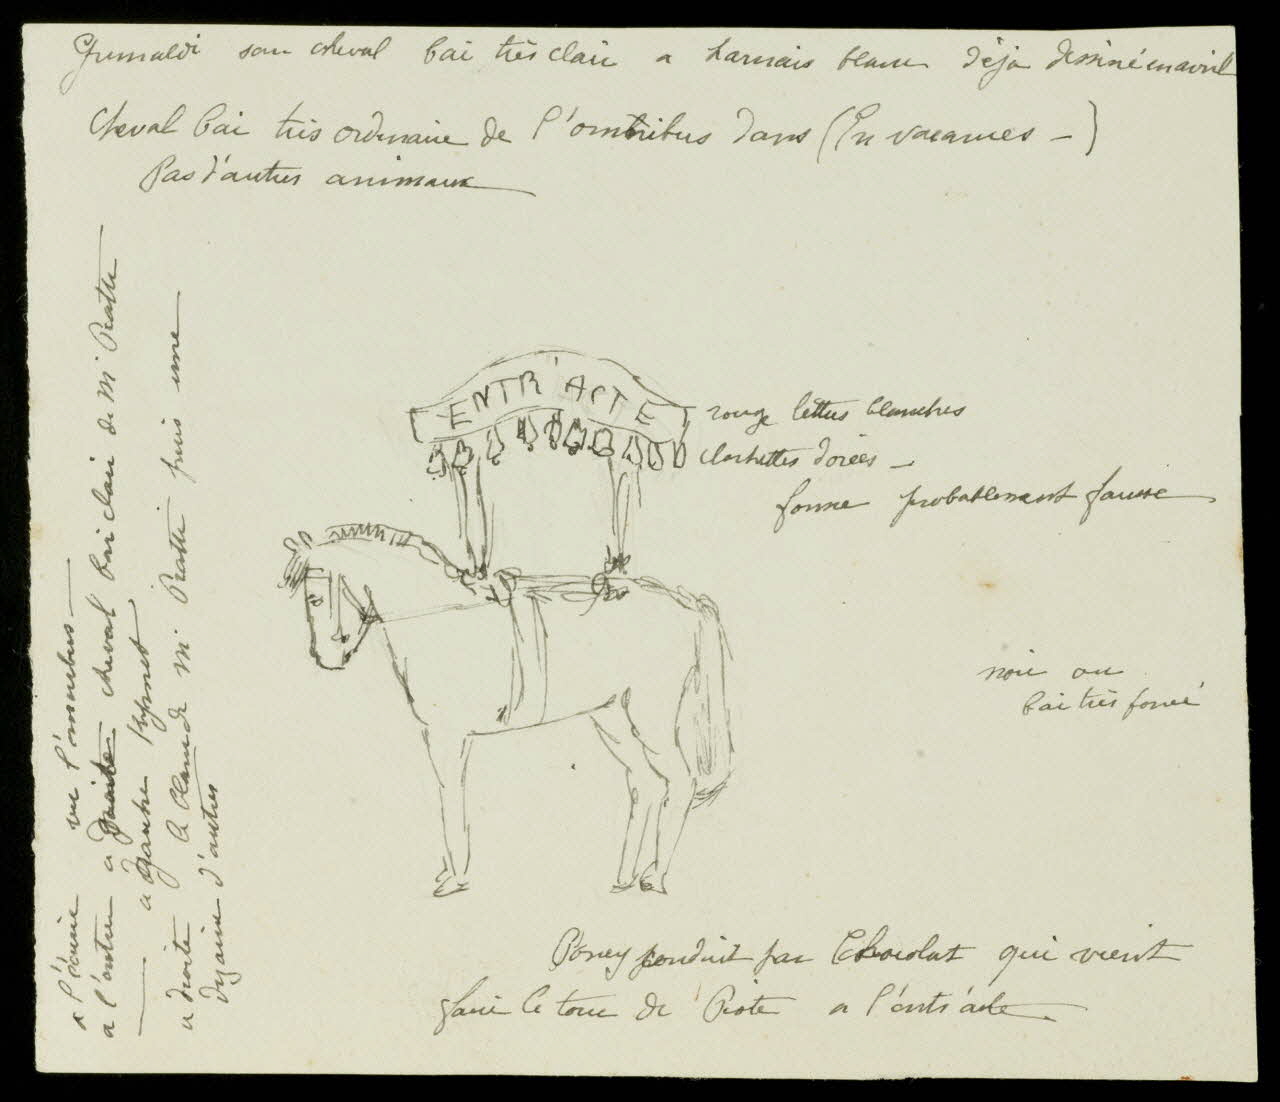 Grimaldi son cheval bai très clair a harnais blanc déjà dessiné en avril
Cheval bai très ordinaire de l'omnibus dans (En vacances -)
Pas d'autres animaux
ENTR'ACTE
rouge lettres blanches
clochettes dorées -
forme probablement fausse
noir ou
bai très foncé
Poney conduit par Chocolat qui vient
faire le tour de Piste a l'entr'acte.
a l'écurie vu l'omnibus
a l'entrée a droite cheval bai clair de Mr Pratte
a gauche
a droite le blanc de Mr Pratte puis une
dizaine d'autres